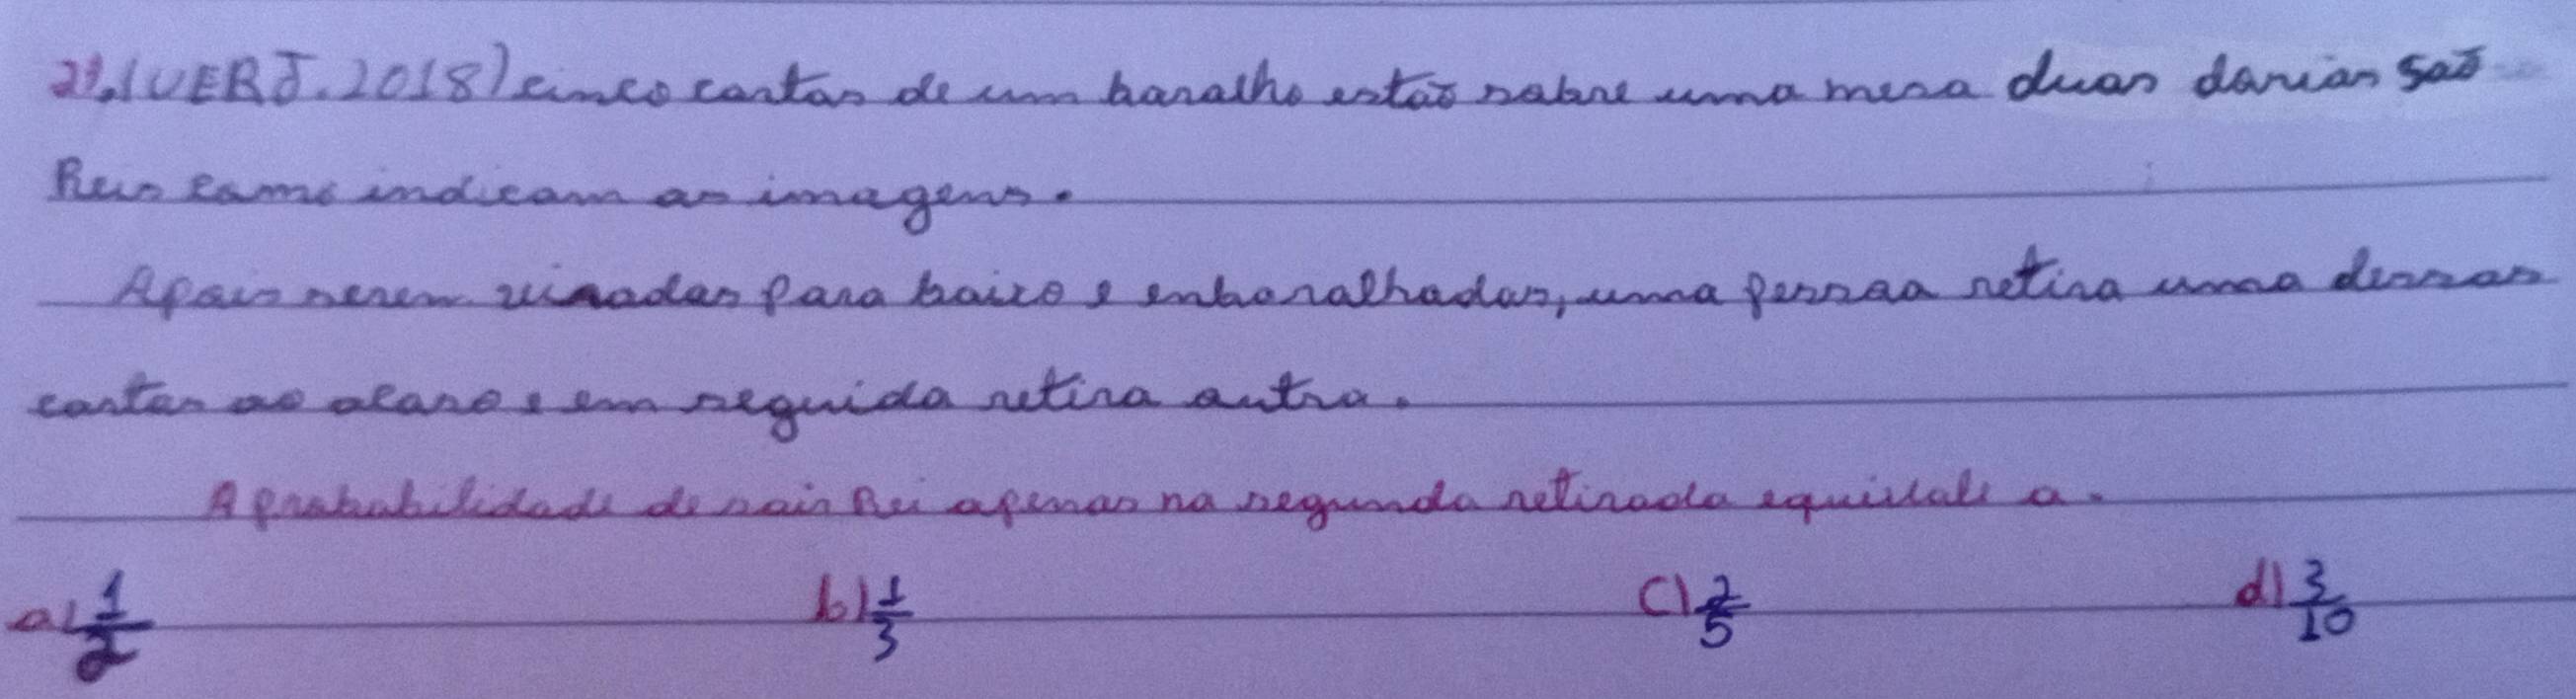 2º.(UERJ.2018) cinco cartas de um baralho estão sobre uma mesa duas darias são
Reis como indicam as imagens.
Apois serem viradas para baixo e enbaralhadas, uma pessoa retira uma dessas
cartas ao acaso e em seguida retira outra.
A probabilidade de sair Rei apenas na segunda retirada equivale a.
a) 1/2 b) 1/3 c) 2/5 d) 3/10